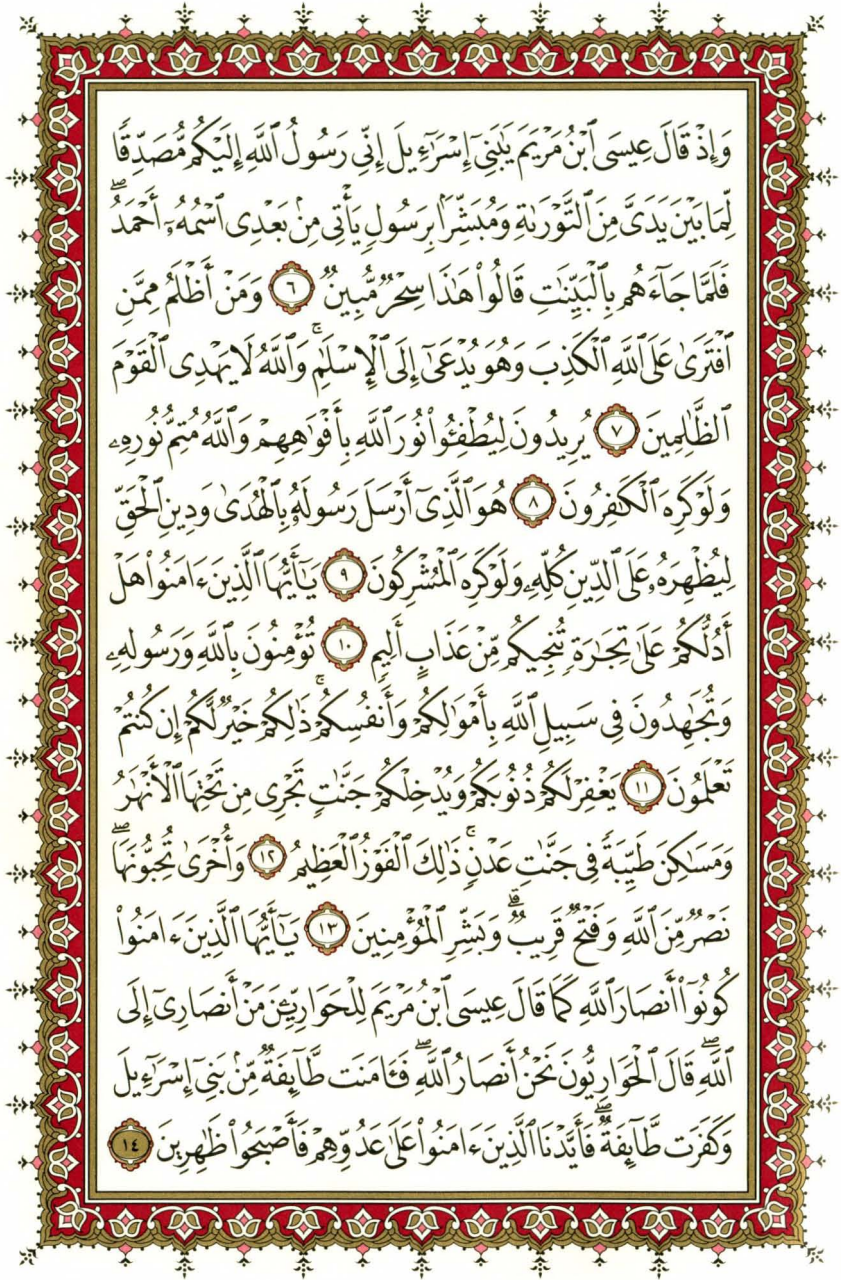 وَإِذْ قَالَ عِيسَى ٱبْنُ مَرْيَمَ يَـٰبَنِىٓ إِسْرَٰٓءِيلَ إِنِّى رَسُولُ ٱللَّهِ إِلَيْكُم مُّصَدِّقًا
لِّمَا بَيْنَ يَدَىَّ مِنَ ٱلتَّوْرَىٰةِ وَمُبَشِّرًۢا بِرَسُولٍ يَأْتِى مِنۢ بَعْدِى ٱسْمُهُۥٓ أَحْمَدُ ۖ
فَلَمَّا جَآءَهُم بِٱلْبَيِّنَـٰتِ قَالُوا۟ هَـٰذَا سِحْرٌ مُّبِينٌ ٦ وَمَنْ أَظْلَمُ مِمَّنِ
ٱفْتَرَىٰ عَلَى ٱللَّهِ ٱلْكَذِبَ وَهُوَ يُدْعَىٰٓ إِلَى ٱلْإِسْلَـٰمِ ۚ وَٱللَّهُ لَا يَهْدِى ٱلْقَوْمَ
ٱلظَّـٰلِمِينَ ٧ يُرِيدُونَ لِيُطْفِـُٔوا۟ نُورَ ٱللَّهِ بِأَفْوَٰهِهِمْ وَٱللَّهُ مُتِمُّ نُورِهِۦ
وَلَوْ كَرِهَ ٱلْكَـٰفِرُونَ ٨ هُوَ ٱلَّذِىٓ أَرْسَلَ رَسُولَهُۥ بِٱلْهُدَىٰ وَدِينِ ٱلْحَقِّ
لِيُظْهِرَهُۥ عَلَى ٱلدِّينِ كُلِّهِۦ وَلَوْ كَرِهَ ٱلْمُشْرِكُونَ ٩ يَـٰٓأَيُّهَا ٱلَّذِينَ ءَامَنُوا۟ هَلْ
أَدُلُّكُمْ عَلَىٰ تِجَـٰرَةٍ تُنجِيكُم مِّنْ عَذَابٍ أَلِيمٍ ١٠ تُؤْمِنُونَ بِٱللَّهِ وَرَسُولِهِۦ
وَتُجَـٰهِدُونَ فِى سَبِيلِ ٱللَّهِ بِأَمْوَٰلِكُمْ وَأَنفُسِكُمْ ۚ ذَٰلِكُمْ خَيْرٌ لَّكُمْ إِن كُنتُمْ
تَعْلَمُونَ ١١ يَغْفِرْ لَكُمْ ذُنُوبَكُمْ وَيُدْخِلْكُمْ جَنَّـٰتٍ تَجْرِى مِن تَحْتِهَا ٱلْأَنْهَـٰرُ
وَمَسَـٰكِنَ طَيِّبَةً فِى جَنَّـٰتِ عَدْنٍ ۚ ذَٰلِكَ ٱلْفَوْزُ ٱلْعَظِيمُ ١٢ وَأُخْرَىٰ تُحِبُّونَهَا ۖ
نَصْرٌ مِّنَ ٱللَّهِ وَفَتْحٌ قَرِيبٌ ۗ وَبَشِّرِ ٱلْمُؤْمِنِينَ ١٣ يَـٰٓأَيُّهَا ٱلَّذِينَ ءَامَنُوا۟
كُونُوٓا۟ أَنصَارَ ٱللَّهِ كَمَا قَالَ عِيسَى ٱبْنُ مَرْيَمَ لِلْحَوَارِيِّـۧنَ مَنْ أَنصَارِىٓ إِلَى
ٱللَّهِ ۖ قَالَ ٱلْحَوَارِيُّونَ نَحْنُ أَنصَارُ ٱللَّهِ ۖ فَـَٔامَنَت طَّآئِفَةٌ مِّنۢ بَنِىٓ إِسْرَٰٓءِيلَ
وَكَفَرَت طَّآئِفَةٌ ۖ فَأَيَّدْنَا ٱلَّذِينَ ءَامَنُوا۟ عَلَىٰ عَدُوِّهِمْ فَأَصْبَحُوا۟ ظَـٰهِرِينَ ١٤